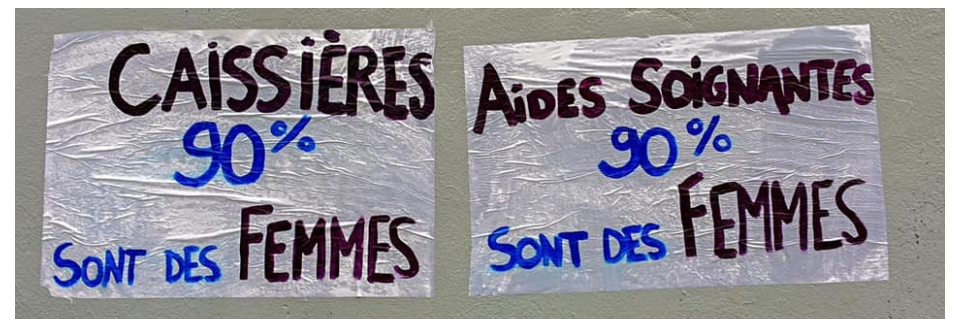 CAISSIÈRES
90%
SONT DES FEMMES
AIDES SOIGNANTES
90%
SONT DES FEMMES